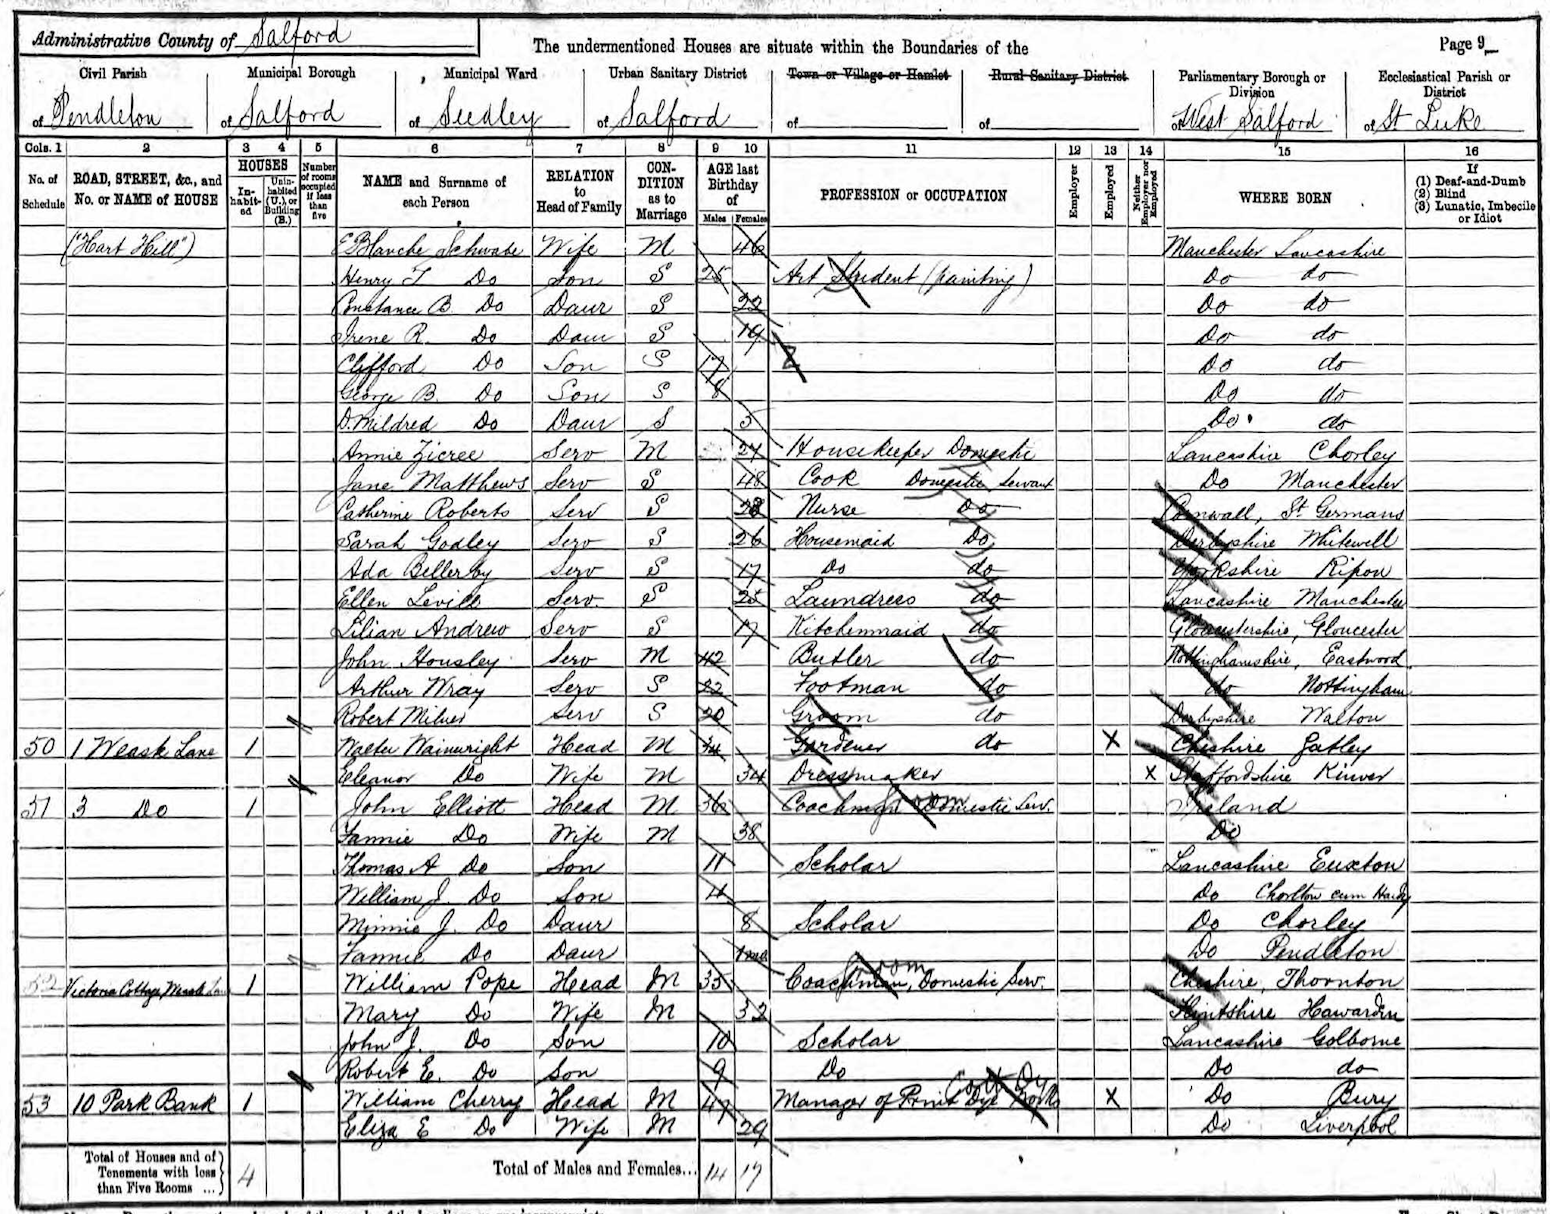 Administrative County of Salford
The undermentioned Houses are situate within the Boundaries of the
Page 9
Civil Parish Municipal Borough Municipal Ward Urban Sanitary District Town or Village or Hamlet Rural Sanitary District Parliamentary Borough or Division Ecclesiastical Parish or District
of Pendleton of Salford of Seedley of Salford of of of West Salford of St Luke
Cols. 1 2 3 4 5 6 7 8 9 10 11 12 13 14 15 16
No. of Schedule ROAD, STREET, &c., and No. or NAME of HOUSE HOUSES Inhabited Uninhabited (U.), or Building (B.) Number of rooms occupied if less than five NAME and Surname of each Person RELATION to Head of Family CONDITION as to Marriage AGE last Birthday of Males Females PROFESSION or OCCUPATION Employer Employed Neither Employer nor Employed WHERE BORN If (1) Deaf-and-Dumb (2) Blind (3) Lunatic, Imbecile or Idiot
("Hart Hill") E Blanche Schwabe Wife M 46 Manchester Lancashire
Henry T Do Son S 25 Art Student (painting) Do do
Constance B. Do Daur S 22 Do do
Irene R. Do Daur S 19 Do do
Clifford Do Son S 17 Do do
George B. Do Son S 8 Do do
D. Mildred Do Daur S 5 Do do
Annie Zicree Serv M 27 Housekeeper Domestic Lancashire Chorley
Jane Matthews Serv S 48 Cook Domestic Servant Do Manchester
Catherine Roberts Serv S 28 Nurse Do Cornwall, St Germans
Sarah Godley Serv S 26 Housemaid Do Derbyshire Whitewell
Ada Bellerby Serv S 17 Do do Yorkshire Ripon
Ellen Serv. S 25 Laundress do Lancashire Manchester
Lilian Andrew Serv S 17 Kitchenmaid do Gloucestershire, Gloucester
John Housley Serv M 42 Butler do Nottinghamshire, Eastwood
Arthur Wray Serv S 22 Footman do do Nottingham
Robert Milner Serv S 20 Groom do Derbyshire Walton
50 1 Weaste Lane 1 Walter Wainwright Head M 34 Gardener do X Cheshire Gatley
Eleanor Do Wife M 34 Dressmaker X Staffordshire Kinver
51 3 Do 1 John Elliott Head M 36 Coachman Groom Domestic Serv. Ireland
Fannie Do Wife M 38 Do
Thomas A Do Son 11 Scholar Lancashire Euxton
William J. Do Son 4 Do Chorlton cum Hardy
Minnie J. Do Daur 8 Scholar Do Chorley
Fannie Do Daur 1 mo Do Pendleton
52 Victoria Cottage, Weaste Lane 1 William Pope Head M 35 Coachman, Groom Domestic Serv. Cheshire, Thornton
Mary Do Wife M 32 Flintshire Hawarden
John J. Do Son 10 Scholar Lancashire Golborne
Robert E. Do Son 9 Do Do do
53 10 Park Bank 1 William Cherry Head M 47 Manager of Print Dye Works X Do Bury
Eliza E Do Wife M 29 Do Liverpool
Total of Houses and of Tenements with less than Five Rooms ... 4 Total of Males and Females... 14 17